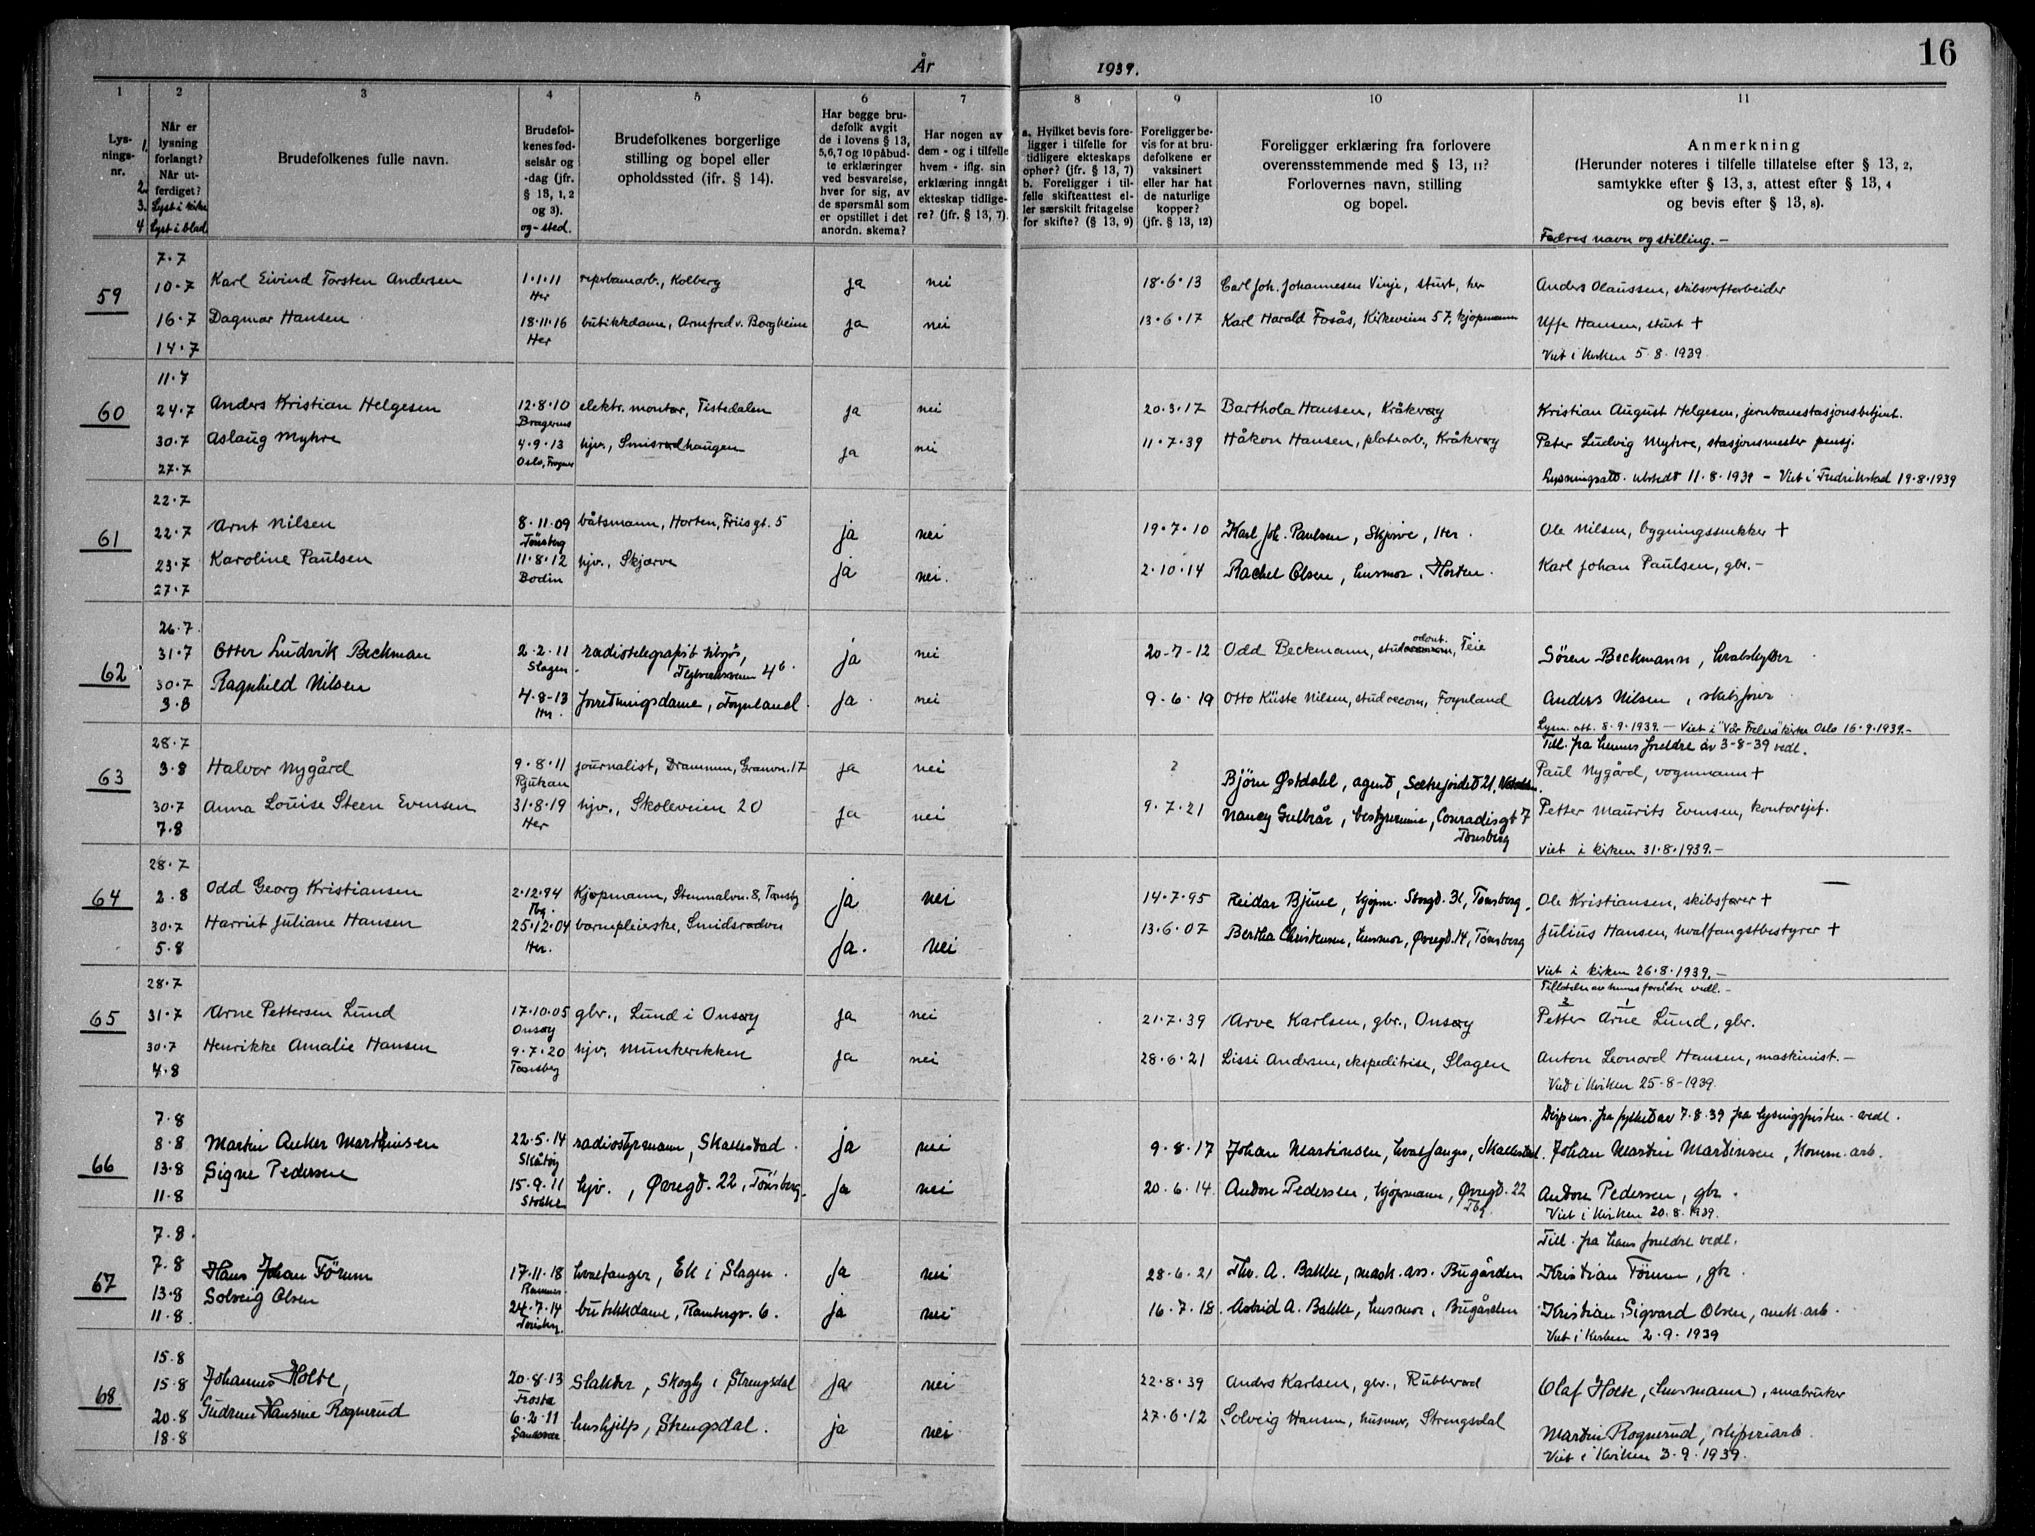 16
År 1939.
1 2 3 4 5 6 7 8 9 10 11
Lysningsnr.
1. Når er lysning forlangt?
2. Når utferdiget?
3. Lyst i kirke
4 Lyst i blad
Brudefolkenes fulle navn.
Brudefolkenes fødselsår og -dag (jfr. § 13, 1, 2 og 3). og -sted.
Brudefolkenes borgerlige stilling og bopel eller opholdssted (ifr. § 14).
Har begge brudefolk avgit de i lovens § 13, 5,6,7 og 10 påbudte erklæringer ved besvarelse, hver for sig, av de spørsmål som er opstillet i det anordn. skema?
Har nogen av dem - og i tilfelle hvem - iflg. sin erklæring inngått ekteskap tidligere? (jfr. § 13, 7).
a. Hvilket bevis foreligger i tilfelle for tidligere ekteskaps ophør? (jfr. § 13, 7)
b. Foreligger i tilfelle skifteattest eller særskilt fritagelse for skifte? (§ 13, 9)
Foreligger bevis for at brudefolkene er vaksinert eller har hat de naturlige kopper? (jfr. § 13, 12)
Foreligger erklæring fra forlovere overensstemmende med § 13, 11? Forlovernes navn, stilling og bopel.
Anmerkning
(Herunder noteres i tilfelle tillatelse efter § 13, 2, samtykke efter § 13, 3, attest efter § 13, 4 og bevis efter § 13, 8).
Fedres navn og stilling. -
59
7.7
10.7 Karl Eivind Torsten Andersen 1.1.11 Her repsbanearb., Kolberg ja nei 18.6.13 Carl Joh. Johannesen Vinje, stuert, her Anders Olaussen, skibsverftarbeider
16.7 Dagmar Hansen 18.11.16 Her butikkdame, Armfred v. Borgheim ja nei 13.6.17 Karl Harald Fosås, Kirkeveien 57, kjøpmann Uffe Hansen, stuert +
14.7 Viet i kirken 5.8.1939.
60
11.7
24.7 Anders Kristian Helgesen 12.8.10 Bragernes elektr. montør, Tistedalen ja nei 20.3.17 Barthola Hansen, Kråkverg Kristian August Helgesen, jernbanestasjonsbetjent.
30.7 Aslaug Myhre 4.9.13 Oslo, Frogner hjv., Smisrødhaugen ja nei 11.7.39 Håkon Hansen, platearb., Kråkverg Peter Ludvig Myhre, stasjonsmester pensj.
27.7 Lysningsatt. utstedt 11.8.1939 - Viet i Fredrikstad 19.8.1939
61
22.7
22.7 Arnt Nilsen 8.11.09 Tönsberg båtsmann, Horten, Friis gt. 5 ja nei 19.7.10 Karl Joh. Paulsen, Skjerve, Her. Ole Nilsen, bygningssnekker +
23.7 Karoline Paulsen 11.8.12 Bodin hjv., Skjærve ja nei. 2.10.14 Rachel Olsen, husmor, Horten. Karl Johan Paulsen, gbr. -
27.7
62
26.7
31.7 Otter Ludvik Beckman 2.2.11 Slagen radiotelegrafist tilsjøs, Teglverksveien 4b. ja nei 20-7-12 Odd Beckmann, stud. odont. Teie Sören Beckmann, hvalskytter
30.7 Ragnhild Nilsen 4.8-13 Her. forretningsdame, Föynland. ja. nei 9.6.19 Otto Küste Nilsen, stud oecon, Foynland Anders Nilsen, skibsfører
3.8 Lysn. att. 8.9.1939. - Viet i "Vår Frelsers" kirke Oslo 16.9.1939.-
63
28.7 Till. fra hennes foreldre av 3-8-39 vedl.
3.8 Halvor Nygård 9.8.11 Rjukan journalist, Drammen, Granvn. 17 ja nei ? Björn Østdahl, agent, Sætrefjordet 21, Paul Nygård, vognmann +
30.7 Anna Louise Steen Evensen 31.8.19 Her hjv., Skoleveien 20 ja nei 9.7.21 Nancy Gulbrår, bestyrerinne, Conradisgt 7 Tönsberg Petter Maurits Evensen, kontorsjef.
7.8 Viet i kirken 31.8.1939.-
64
28.7
2.8 Odd Georg Kristiansen 2.12.94 Tbg. Kjøpmann, Stenmalvn. 8, Tønsbg ja nei 14.7.95 Reidar Bjune, kjøpm. Storgt. 31, Tønsberg. Ole Kristiansen, skibsfører +
30.7 Harriet Juliane Hansen 25.12.04 Her. barnepleierske, Smidsrødvn ja. nei 13.6.07 Bertha Christensen, husmor, Øvregt. 14, Tønsberg Julius Hansen, hvalfangstbestyrer +
5.8 Viet i kirken 26.8.1939.-
65
28.7 Tillatelse av hennes foreldre vedl. -
31.7 Arne Pettersen Lund 17.10.05 Onsøy gbr., Lund i Onsøy ja nei 21.7.39 Arve Karlsen, gbr., Onsøy Petter Arne Lund, gbr.
30.7 Henrikke Amalie Hansen 9.7.20 Tønsberg hjv, Munkerekken ja nei 28.6.21 Lissi Andersen, ekspeditrise, Slagen Anton Leonard Hansen, maskinist. -
4.8 Viet i kirken 25.8-1939.
66
7.8 Dispens. fra fylket av 7.8.39 fra lysningsfristen vedl.
8.8 Martin Anker Marthinsen 22.5.14 Skåtøy radiostyrmann, Skallestad. ja nei 9.8.17 Johan Martinsen, hvalfanger, Skallestad. Johan Martin Martinsen, Komm. arb.
13.8 Signe Pedersen 15.9.11 Stokke hjv., Øvregt. 22, Tönsberg. ja nei 20.6.14 Andor Pedersen, kjøpmann, Øvregt. 22 Tbg. Andor Pedersen, gbr.
11.8 Viet i kirken 20.8.1939.
67
7.8. Till. fra hans foreldre vedl.
7.8 Hans Johan Förum 17.11.18 Ramnes hvalfanger, Ek i Slagen. ja nei 28.6.21 Thv. A. Bakke, mask. ass. Bugården Kristian Förum, gbr.
13.8 Solveig Olsen 24.7.14 Tönsbg. butikkdame, Rambergv. 6. ja nei 16.7.18 Astrid A. Bakke, husmor, Bugården Kristian Sigvard Olsen, mek. arb.
11.8 Viet i kirken 2.9.1939
68
15.8
15.8 Johannes Holte, 20.8.13 Frosta Slakter, Skogly i Strengsdal ja nei 22.8.39 Anders Karlsen, gbr., Rubberød Olaf Holte, (husmann), småbruker
20.8 Gudrun Hansine Rognerud 6.2.11 Sandsvær hushjelp, Strengsdal. ja nei 27.6.12 Solveig Hansen, husmor, Strengsdal Martin Rognerud, sliperiarb.
18.8 Viet i kirken 3.9.1939.